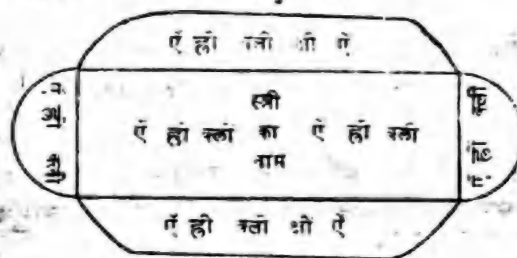 ऐं ह्लीं क्लीं श्रीं ऐं
ऐं ह्लीं क्लीं
स्त्री
ऐं ह्लीं क्लीं का ऐं ह्लीं क्लीं
नाम
ऐं ह्लीं क्लीं श्रीं ऐं